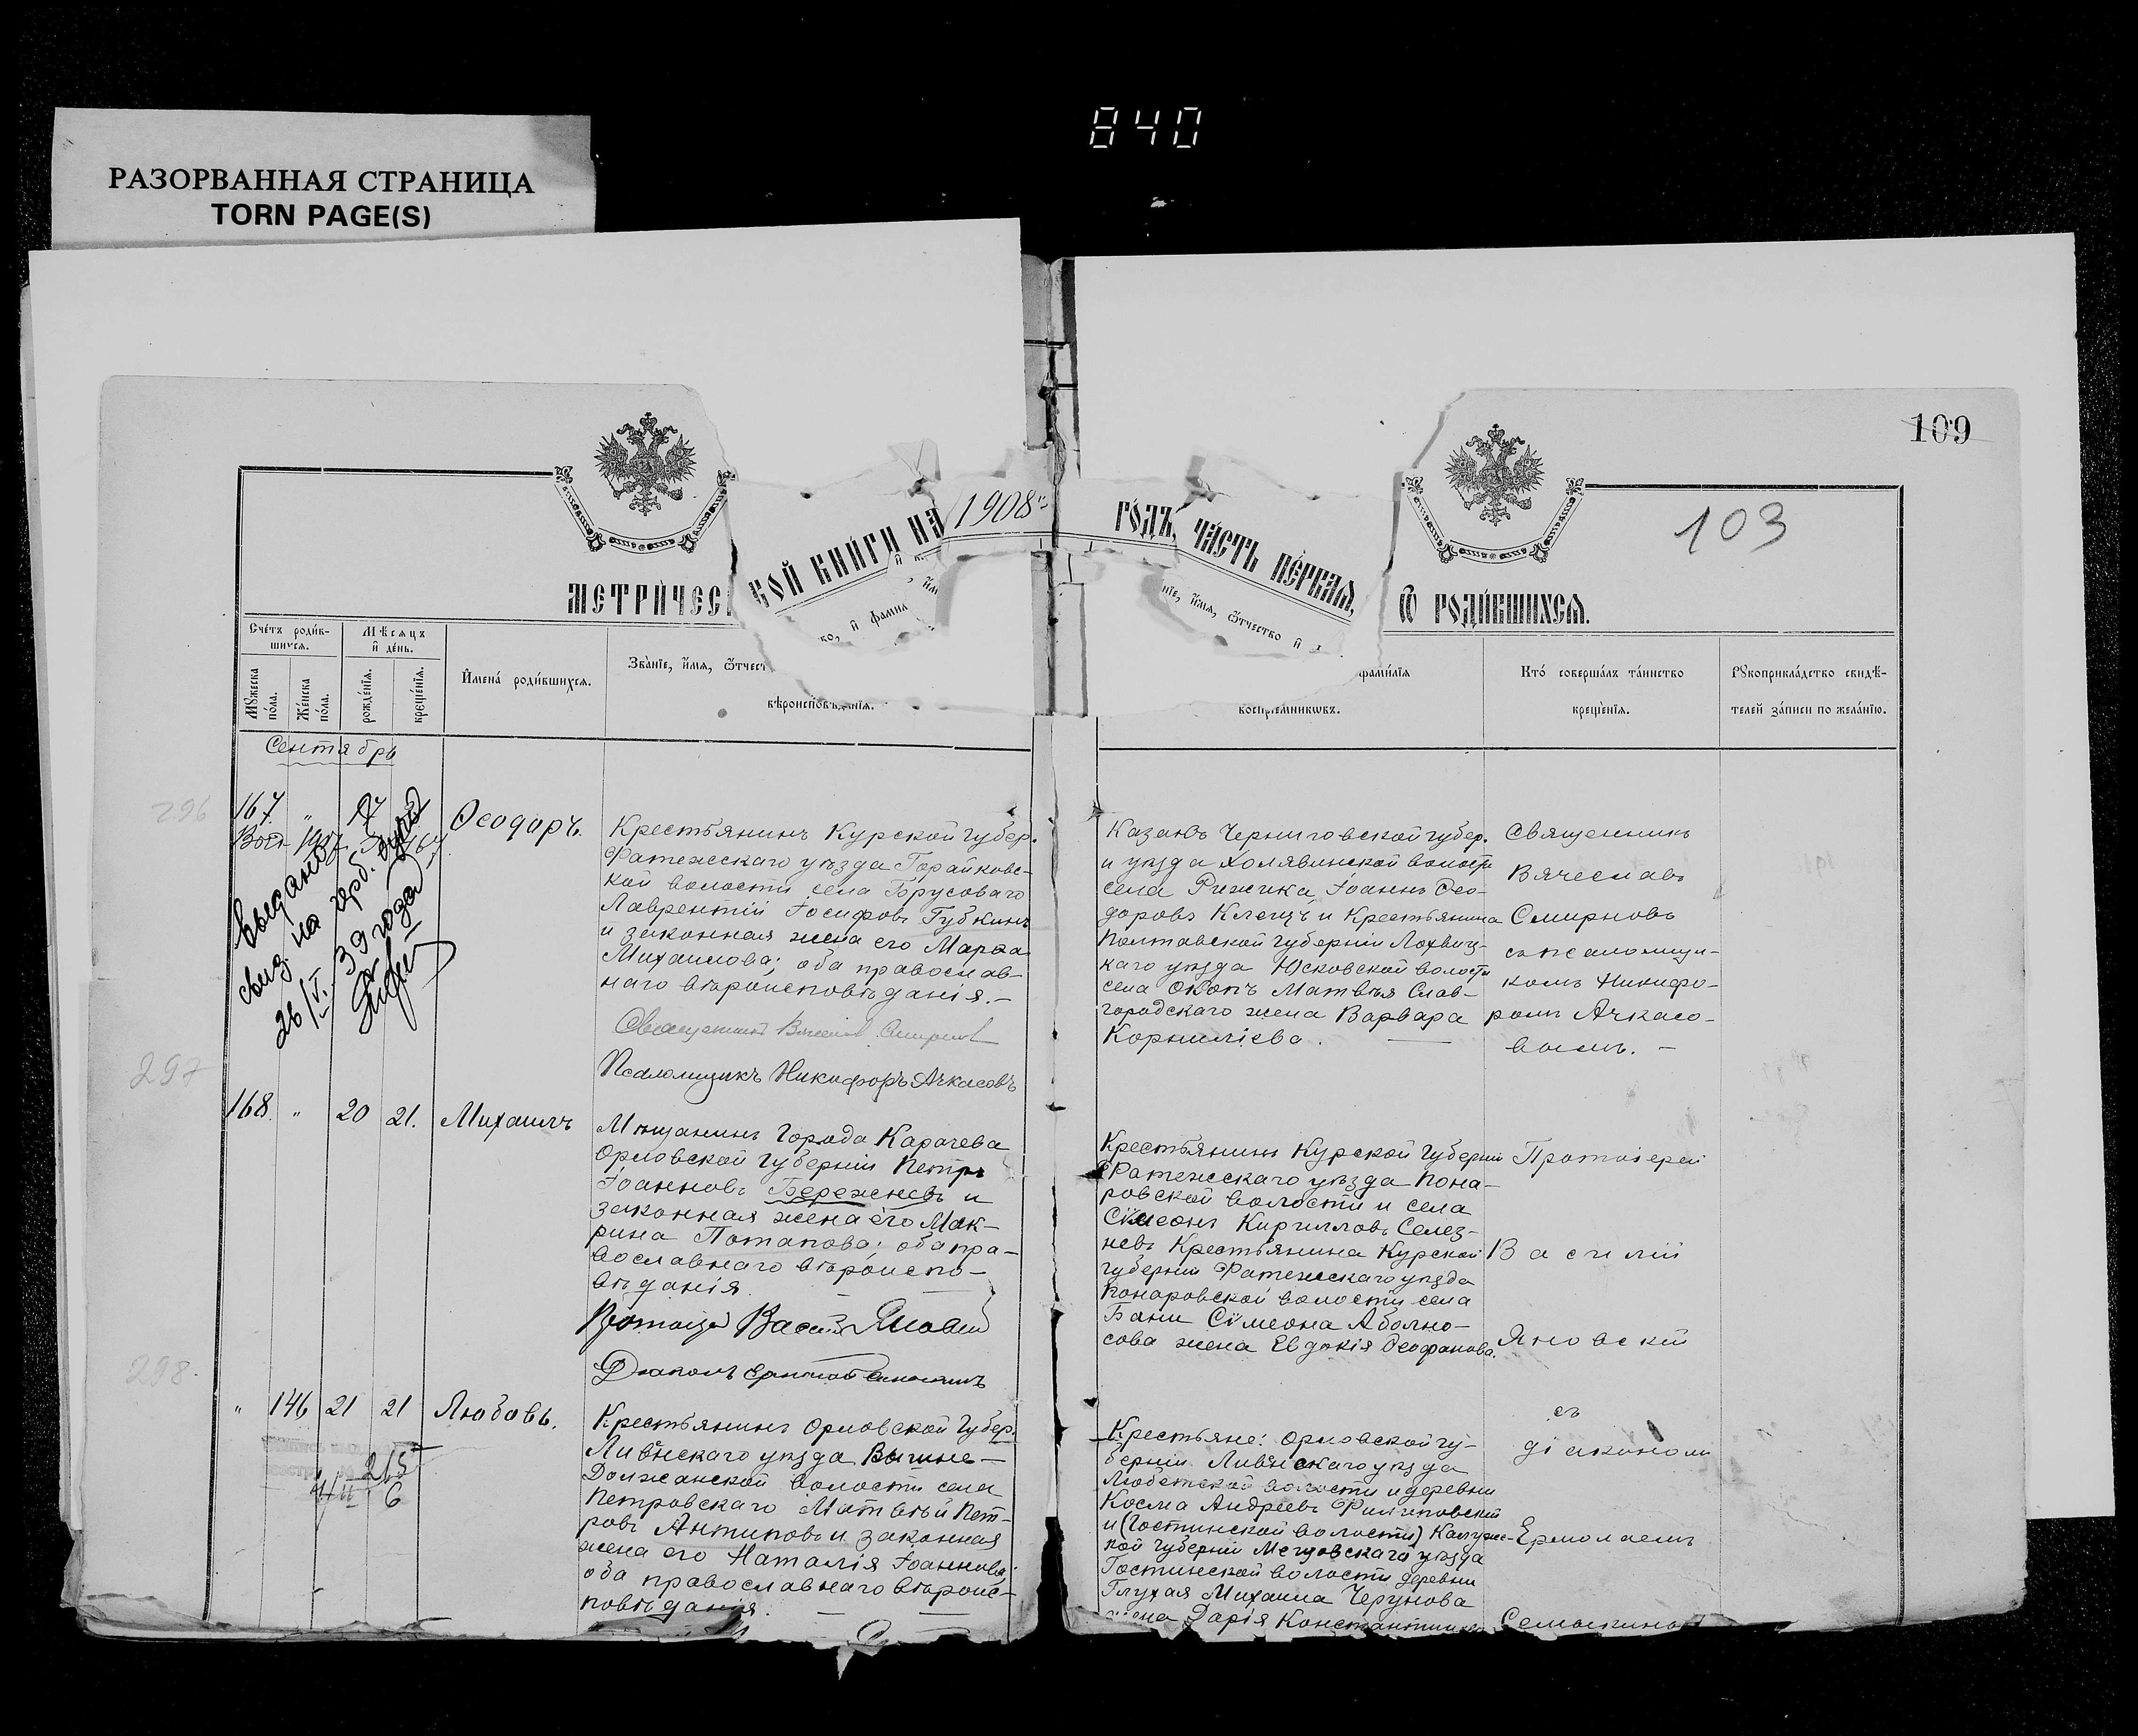 840
РАЗОРВАННАЯ СТРАНИЦА
TORN PAGE(S)
109
103
МЕТРИЧЕС
КОЙ КНИГИ НА 1908 ГОДЪ, ЧАСТЬ ПЕРВАЯ,
Ѿ РОДИВШИХСЯ.
Счетъ родив-
шихся.
Мѣсяцъ
и день.
Мужеска
пола.
Женска
пола.
рожденія.
крещенія.
Имена родившихся.
Званіе, имя, ѿчест
ко, и фамил
вѣроисповѣданія.
ніе, имя, ѿчество и
фамилія
воспріемниковъ.
Кто совершалъ таинство
крещенія.
Рукоприкладство свидѣ-
телей записи по желанію.
Сентябрь
296
167 "
Ѳеодоръ.
выдано
свид. на герб.
26/V. 39 года
Крестьянинъ Курской губер.
Фатежскаго уѣзда
кой волости села Брусоваго
Лаврентій Іосифовъ Губкинъ
и законная жена его Марѳа
Михаилова; оба православ-
наго вѣроисповѣданія.-
Священникъ Вячеслав Смирнов
Псаломщикъ Никифоръ Ачкасовъ
Казакъ Черниговской губер.
и уѣзда Холявинской волости
села Рижика, Іоаннъ Ѳео-
доровъ Клещъ и Крестьянина
Полтавской губерніи Лохвиц-
каго уѣзда Юсковской волости
села Окопъ Матвѣя Слав-
городскаго жена Варвара
Корниліева.
Священникъ
Вячеславъ
Смирновъ
съ псаломщи-
комъ Никифо-
ромъ Ачкасо-
вымъ. -
297
168. " 20 21. Михаилъ
Мѣщанинъ города Карачева
Орловской губерніи Петръ
Іоанновъ Бережневъ и
законная жена его Мак-
рина Потапова; оба пра-
вославнаго вѣроиспо-
вѣданія.
Протоіерей Василій Яновскій
Крестьянинъ Курской губерніи
Фатежскаго уѣзда Пона-
ровской волости и села
Сѵмеонъ Кирилловъ Селез-
невъ Крестьянина Курской
губерніи Фатежскаго уѣзда
Понаровской волости села
Бани Сѵмеона Аболмо-
сова жена Евдокія Ѳеофанова.
Протоіерей
Василій
Яновскій
298.
" 146 21 21 Любовь.
215
4/II 6
Крестьянинъ Орловской губер.
Ливенскаго уѣзда Вышне-
Должанской волости села
Петровскаго Матвѣй Пет-
ровъ Антиповъ и законная
жена его Наталія Іоаннова;
оба православнаго вѣроис-
повѣданія.
Крестьяне: Орловской гу-
берніи Ливенскаго уѣзда
волости и деревни
Косма Андреевъ Филиповскій
и (Гостинской волости) Калужс-
кой губерніи Мещовскаго уѣзда
Гостинской волости деревни
Глухая Михаила Черунова
жена Дарія Константинова
съ
діакономъ
Ермолаемъ